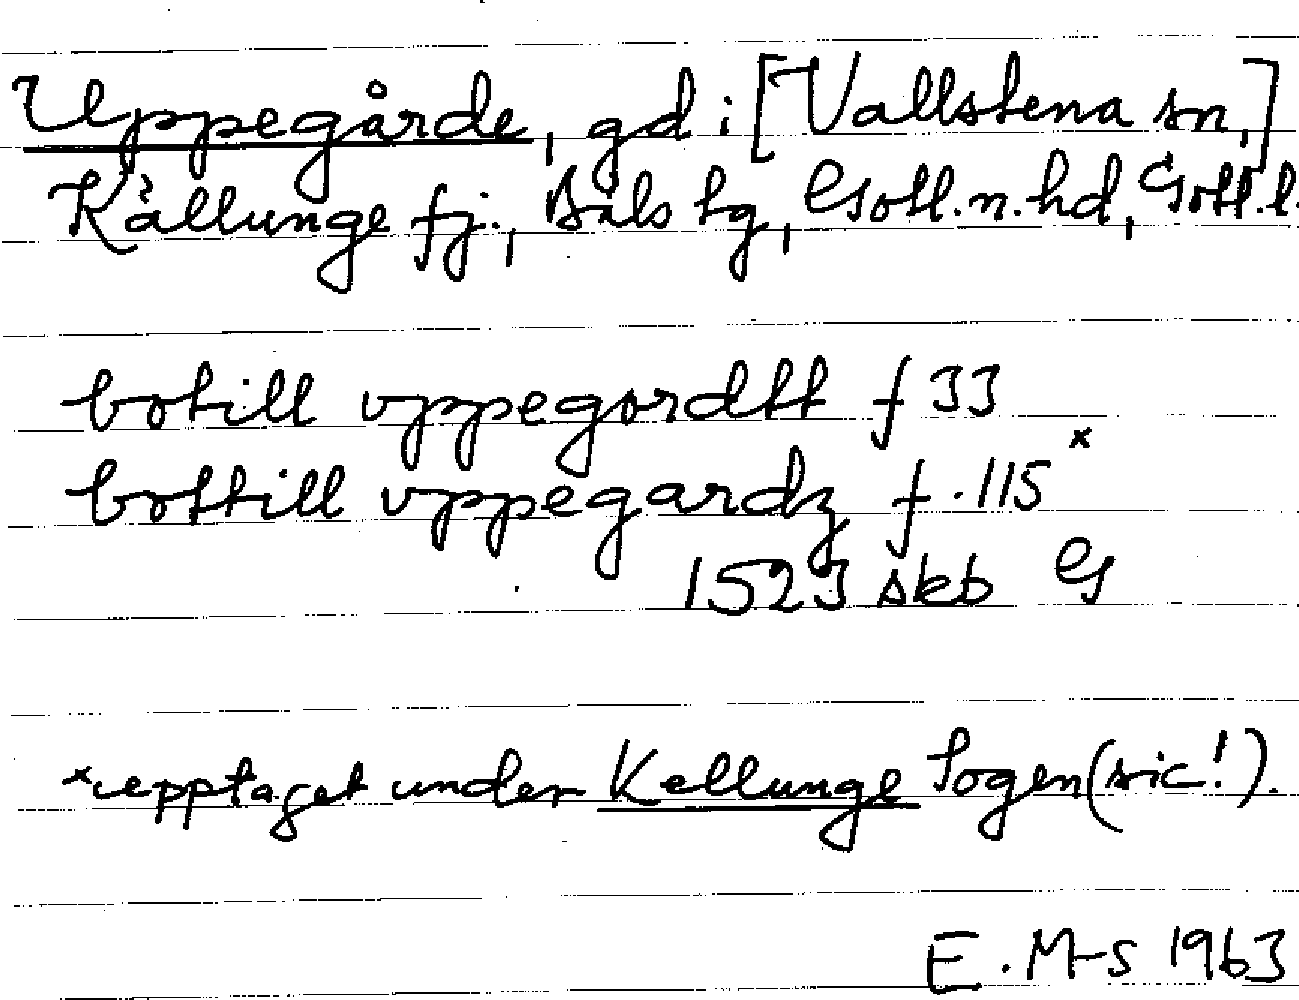 Uppegårde, gd i [Vallstena sn,]
Källunge fj., Bäls tg, Gotl. n. hd, Gotl. l.
botill vppegordtt f 33
bottill vppegardz f. 115 x
1523 skb G
x upptaget under Kellunge Sogen (sic!).
E. M-s 1963